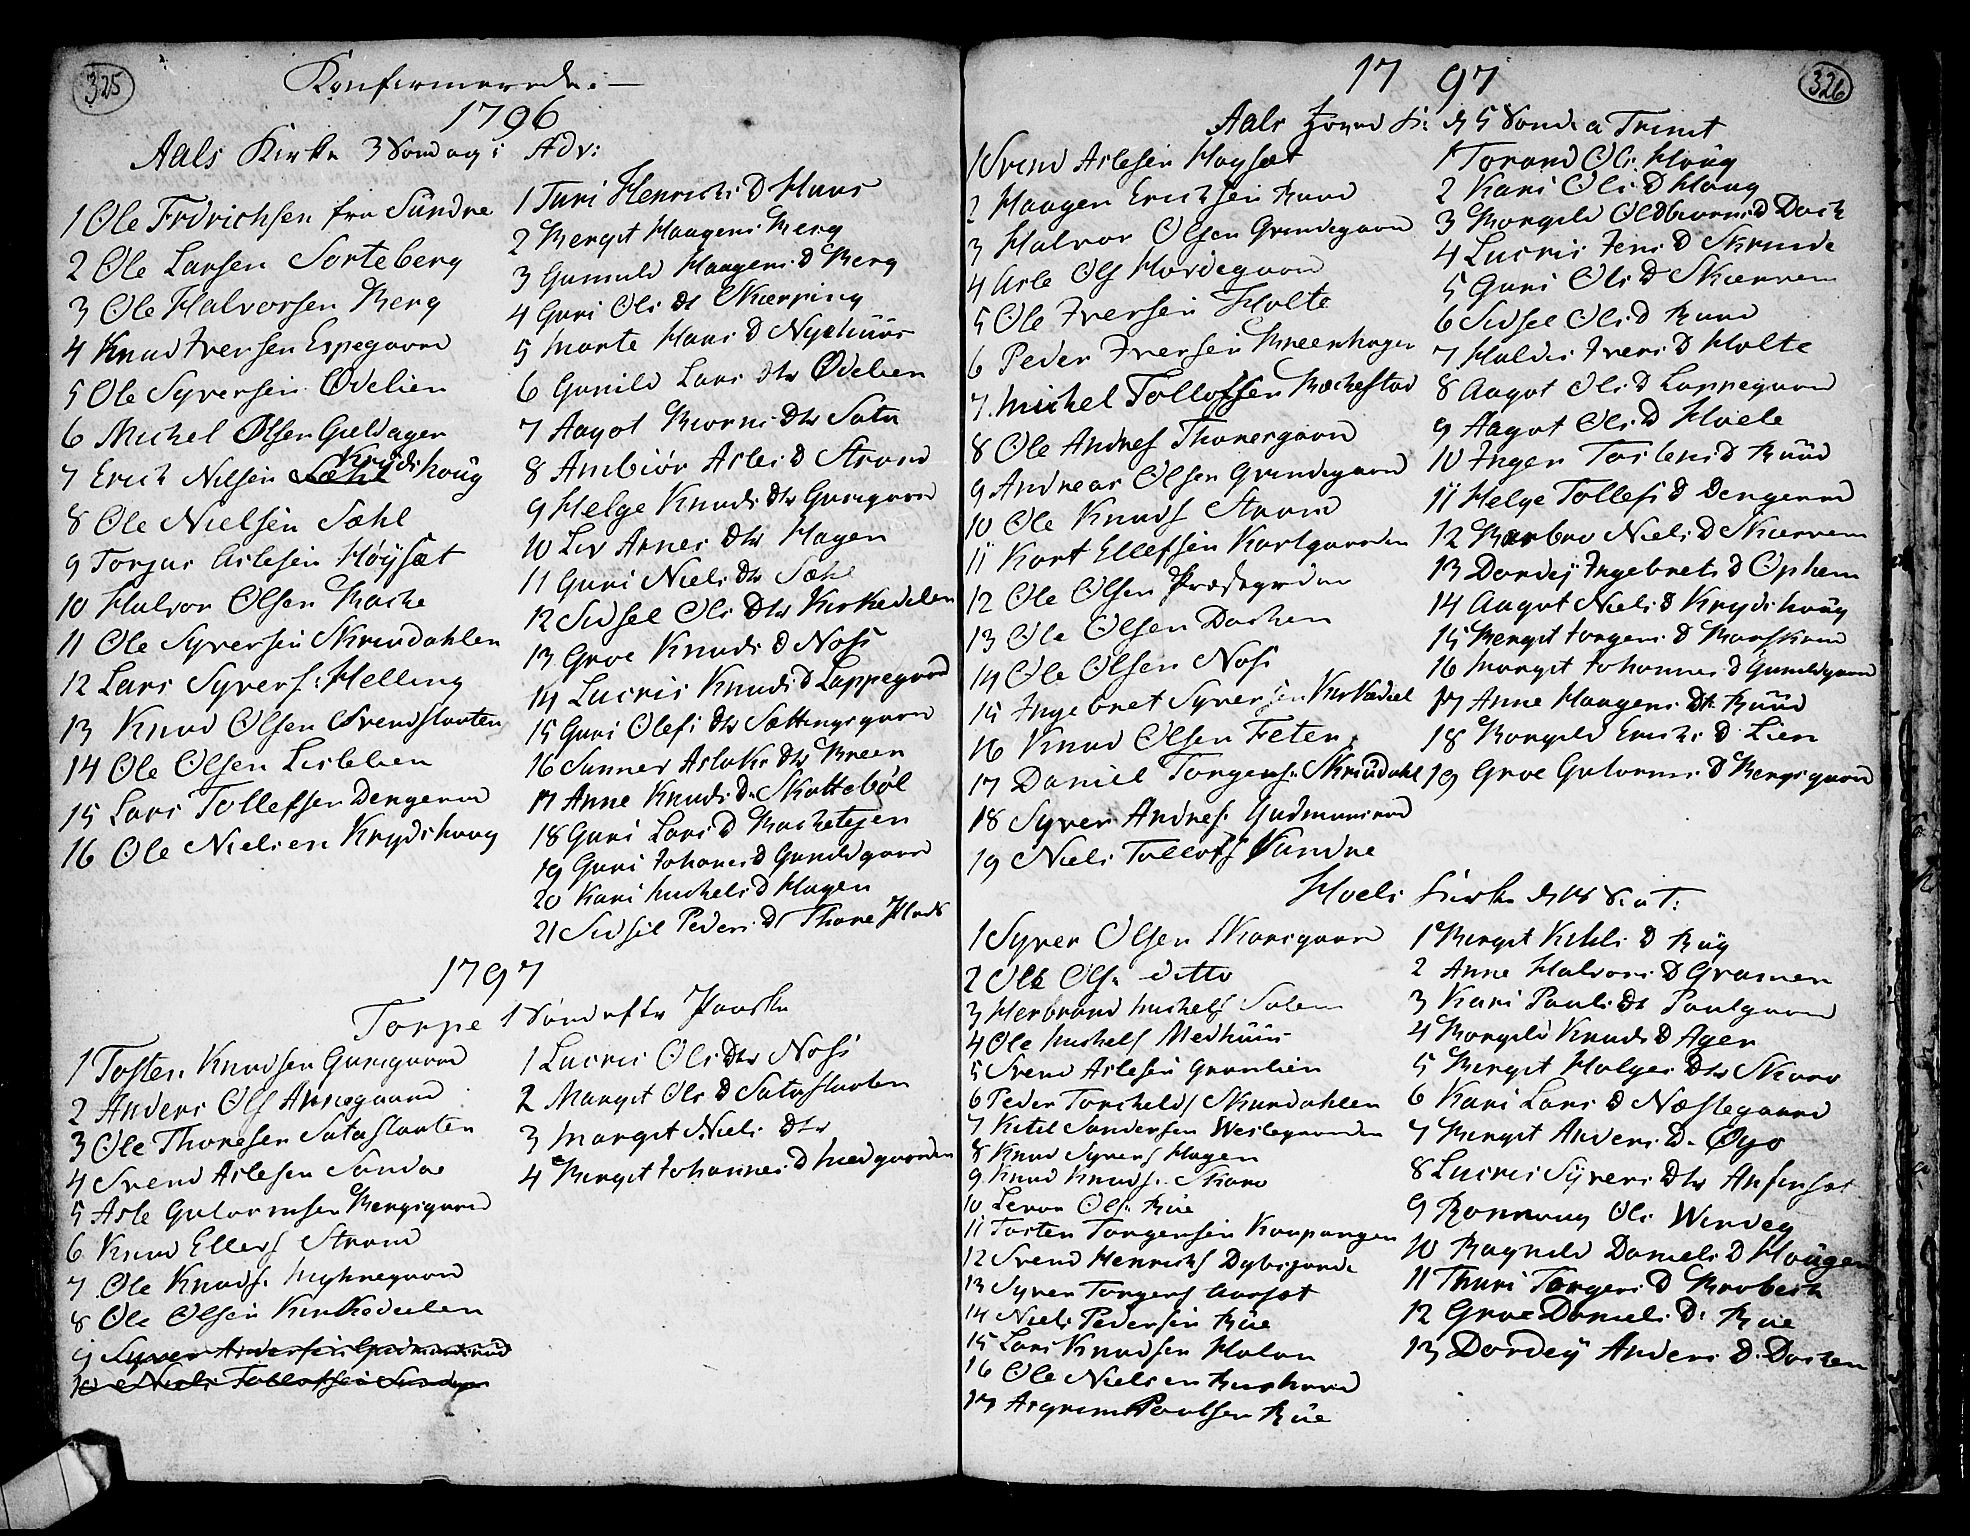 325
Konfirmerede:
1796
Aals Kirke 3 Sondag i Adv:
1 Ole Fridrichsen fra Sundre
2 Ole Larsen Sorteberg
3 Ole Halvorsen Berg
4 Knud Iversen Espegaard
5 Ole Syversen Ødelien
6 Michel Olsen Guldager
7 Erich Nilsen Sæhl Krydshoug
8 Ole Nielsen Sæhl
9 Torger Arlesen Høysæt
10 Halvor Olsen Backe
11 Ole Syversen Skrindahlen
12 Lars Syvers: Helling
13 Knud Olsen Svendslaaten
14 Ole Olsen Lislelien
15 Lars Tollefsen Dengerud
16 Ole Nielsen Krydshaug
1 Turi Henrichs D Huus
2 Bergit Haagens Berg
3 Gunnild Haagens D Berg
4 Guri Ols Dt Skierping
5 Marte Hans D Nyehuus
6 Gunild Lars Dtr Ødelien
7 Aagot Biorns Dtr Sata
8 Ambiør Asles D Strand
9 Helge Knuds Dtr Gurigaard
10 Liv Arnes Dtr Hagen
11 Guri Niels Dtr Sæhl
12 Sidsel Ols Dtr Kirkedelen
13 Groe Knuds D Noss
14 Lucris Knuds D Lappegaard
15 Guri Olefs Dtr Sættingsgaard
16 Sunnev Aslaks Dtr Breen
17 Anne Knuds D: Skottebøl
18 Guri Lars D Backetejen
19 Guri Johanes D Gundegaard
20 Kari Michels D Hagen
21 Sidsil Peders Dt ThorePlads
1797
Torpe 1 Sond efter Paaske
1 Tosten Knudsen Gurigaard
2 Anders Ols Annegaard
3 Ole Thoresen Sataslaaten
4 Svend Arlesen Sundre
5 Asle Gulormsen Bergsgaard
6 Knud Ellefs Strand
7 Ole Knuds: Myhregaard
8 Ole Olsen Kirkedeelen
9 Syver Andersen Gudmundsrud
10 Niels Tollefsen Sundre
1 Lucris Ols Dtr Noss
2 Margit Ols D Sataslaaten
3 Margit Niels Dtr
4 Bergit Johannes D Midgaarden
326
1797
Aals Hoved K: d 5 Sond: a Trinit
1 Svend Aslesen Høysæt
2 Haagen Erichsen Ruud
3 Halvor Olsen Grindegaard
4 Asle Ols Hordegaard
5 Ole Iversen Holte
6 Peder Iversen Breenhagen
7 Michel Tollefsen Backestad
8 Ole Andres Thoresgaard
9 Andreas Olsen Grindegaard
10 Ole Knuds Strand
11 Kort Ellefsen Kortgaarden
12 Ole Olsen Præstegrden
13 Ole Olsen Docken
14 Ole Olsen Noss
15 Ingebret Syversen Kirkedeel
16 Knud Olsen Feten
17 Daniel Torgers: Skrindahl
18 Syver Andres: Gudmunsrud
19 Niels Tollefs Sundre
1 Torand Ols: Houg
2 Kari Ols D Haug
3 Borgild Oldbiorns D Dock
4 Lucris Jens D Skrinde
5 Guri Ols D Skierven
6 Sidsel Ols D Ruud
7 Haldis Ivers D Holte
8 Aagot Ols D Lappegaard
9 Aagot Ols D Hoele
10 Inger Tostens D Ruud
11 Helge Tollefs D Dengerud
12 Barbro Niels D Skierven
13 Dordej Ingebrets D Ophem
14 Aagot Niels D Krydshoug
15 Bergit Torgers D Brenskaud
16 Margit Johannes D Gundegaard
17 Anne Haagens Dt Ruud
18 Borgild Erichs D: Lien
19 Groe Gulorms D Bergsgaard
Hoels Kirke d 18 S: a T:
1 Syver Olsen Skarsgaard
2 Ole Ols: ditto
3 Herbrand Michels Solem
4 Ole Michels Medhuus
5 Svend Aslesen Grønlien
6 Peder Torchelds Skurdahlen
7 Ketil Sandersen Westegaarden
8 Knud Syvers Hagen
9 Knud Knuds: Skaro
10 Levor Ols: Rue
11 Tosten Torgersen Kaupangen
12 Svend Henrichs Dybsjorde
13 Syver Torgers Aarset
14 Niels Pedersen Rue
15 Lars Knudsen Holan
16 Ole Nielsen
17 Asgrim Paulsen Rue
1 Bergit Kitils D Rüg
2 Anne Halvors D Gramen
3 Kari Pauls Dt Paulgaard
4 Borgild Knuds D Ager
5 Bergit Holges Dtr Skaro
6 Kari Lars D Næstegaard
7 Bergit Anders D: Øyo
8 Lucris Syvers Dtr Anfinset
9 Ronnaug Ols Windeg
10 Ragnild Daniels D Hougen
11 Thuri Torgers D Brobeck
12 Groe Daniels D: Rue
13 Dordej Anders D. Docken